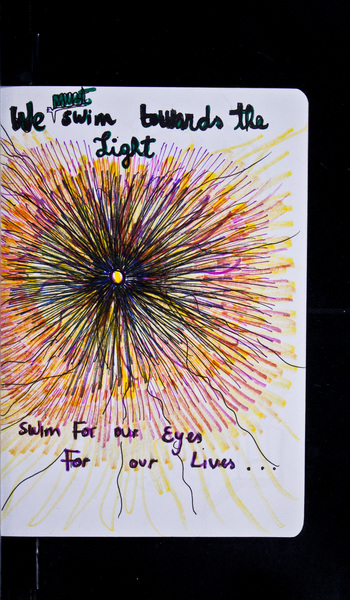 must
We swim towards the
Light
Swim For our Eyes
For our Lives ...